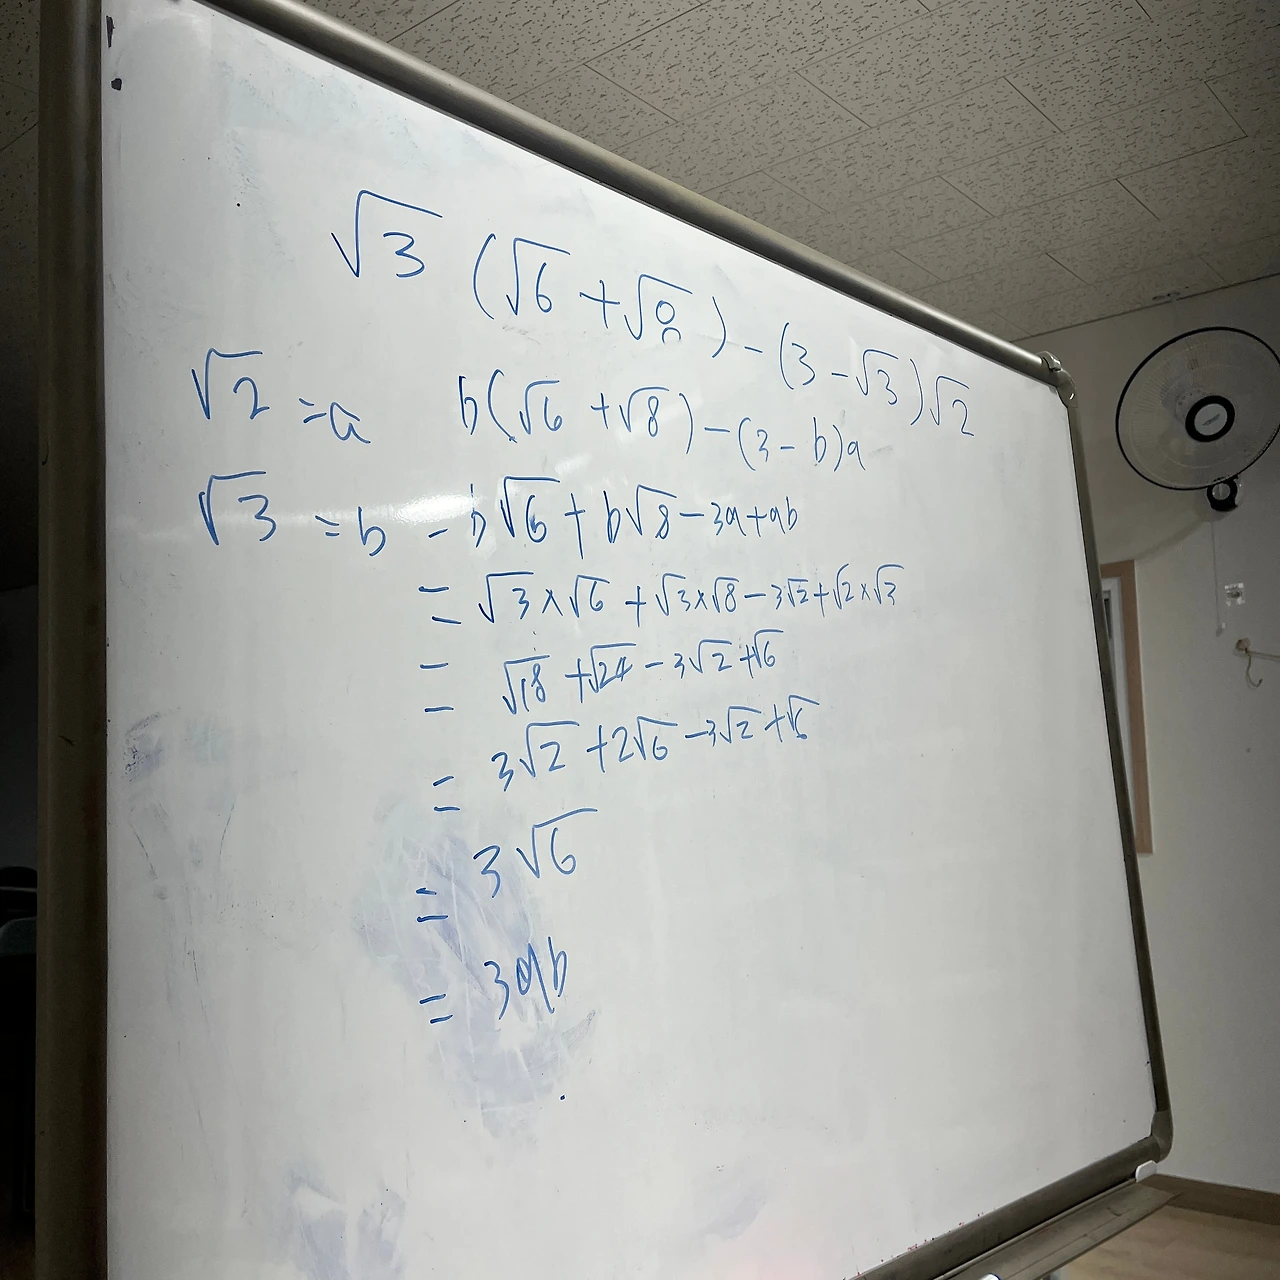 √3 (√6 + √8) - (3 - √3)√2
√2 = a
b(√6 + √8) - (3 - b)a
√3 = b
= b√6 + b√8 - 3a + ab
= √3 × √6 + √3 × √8 - 3√2 + √2 × √3
= √18 + √24 - 3√2 + √6
= 3√2 + 2√6 - 3√2 + √6
= 3√6
= 3ab